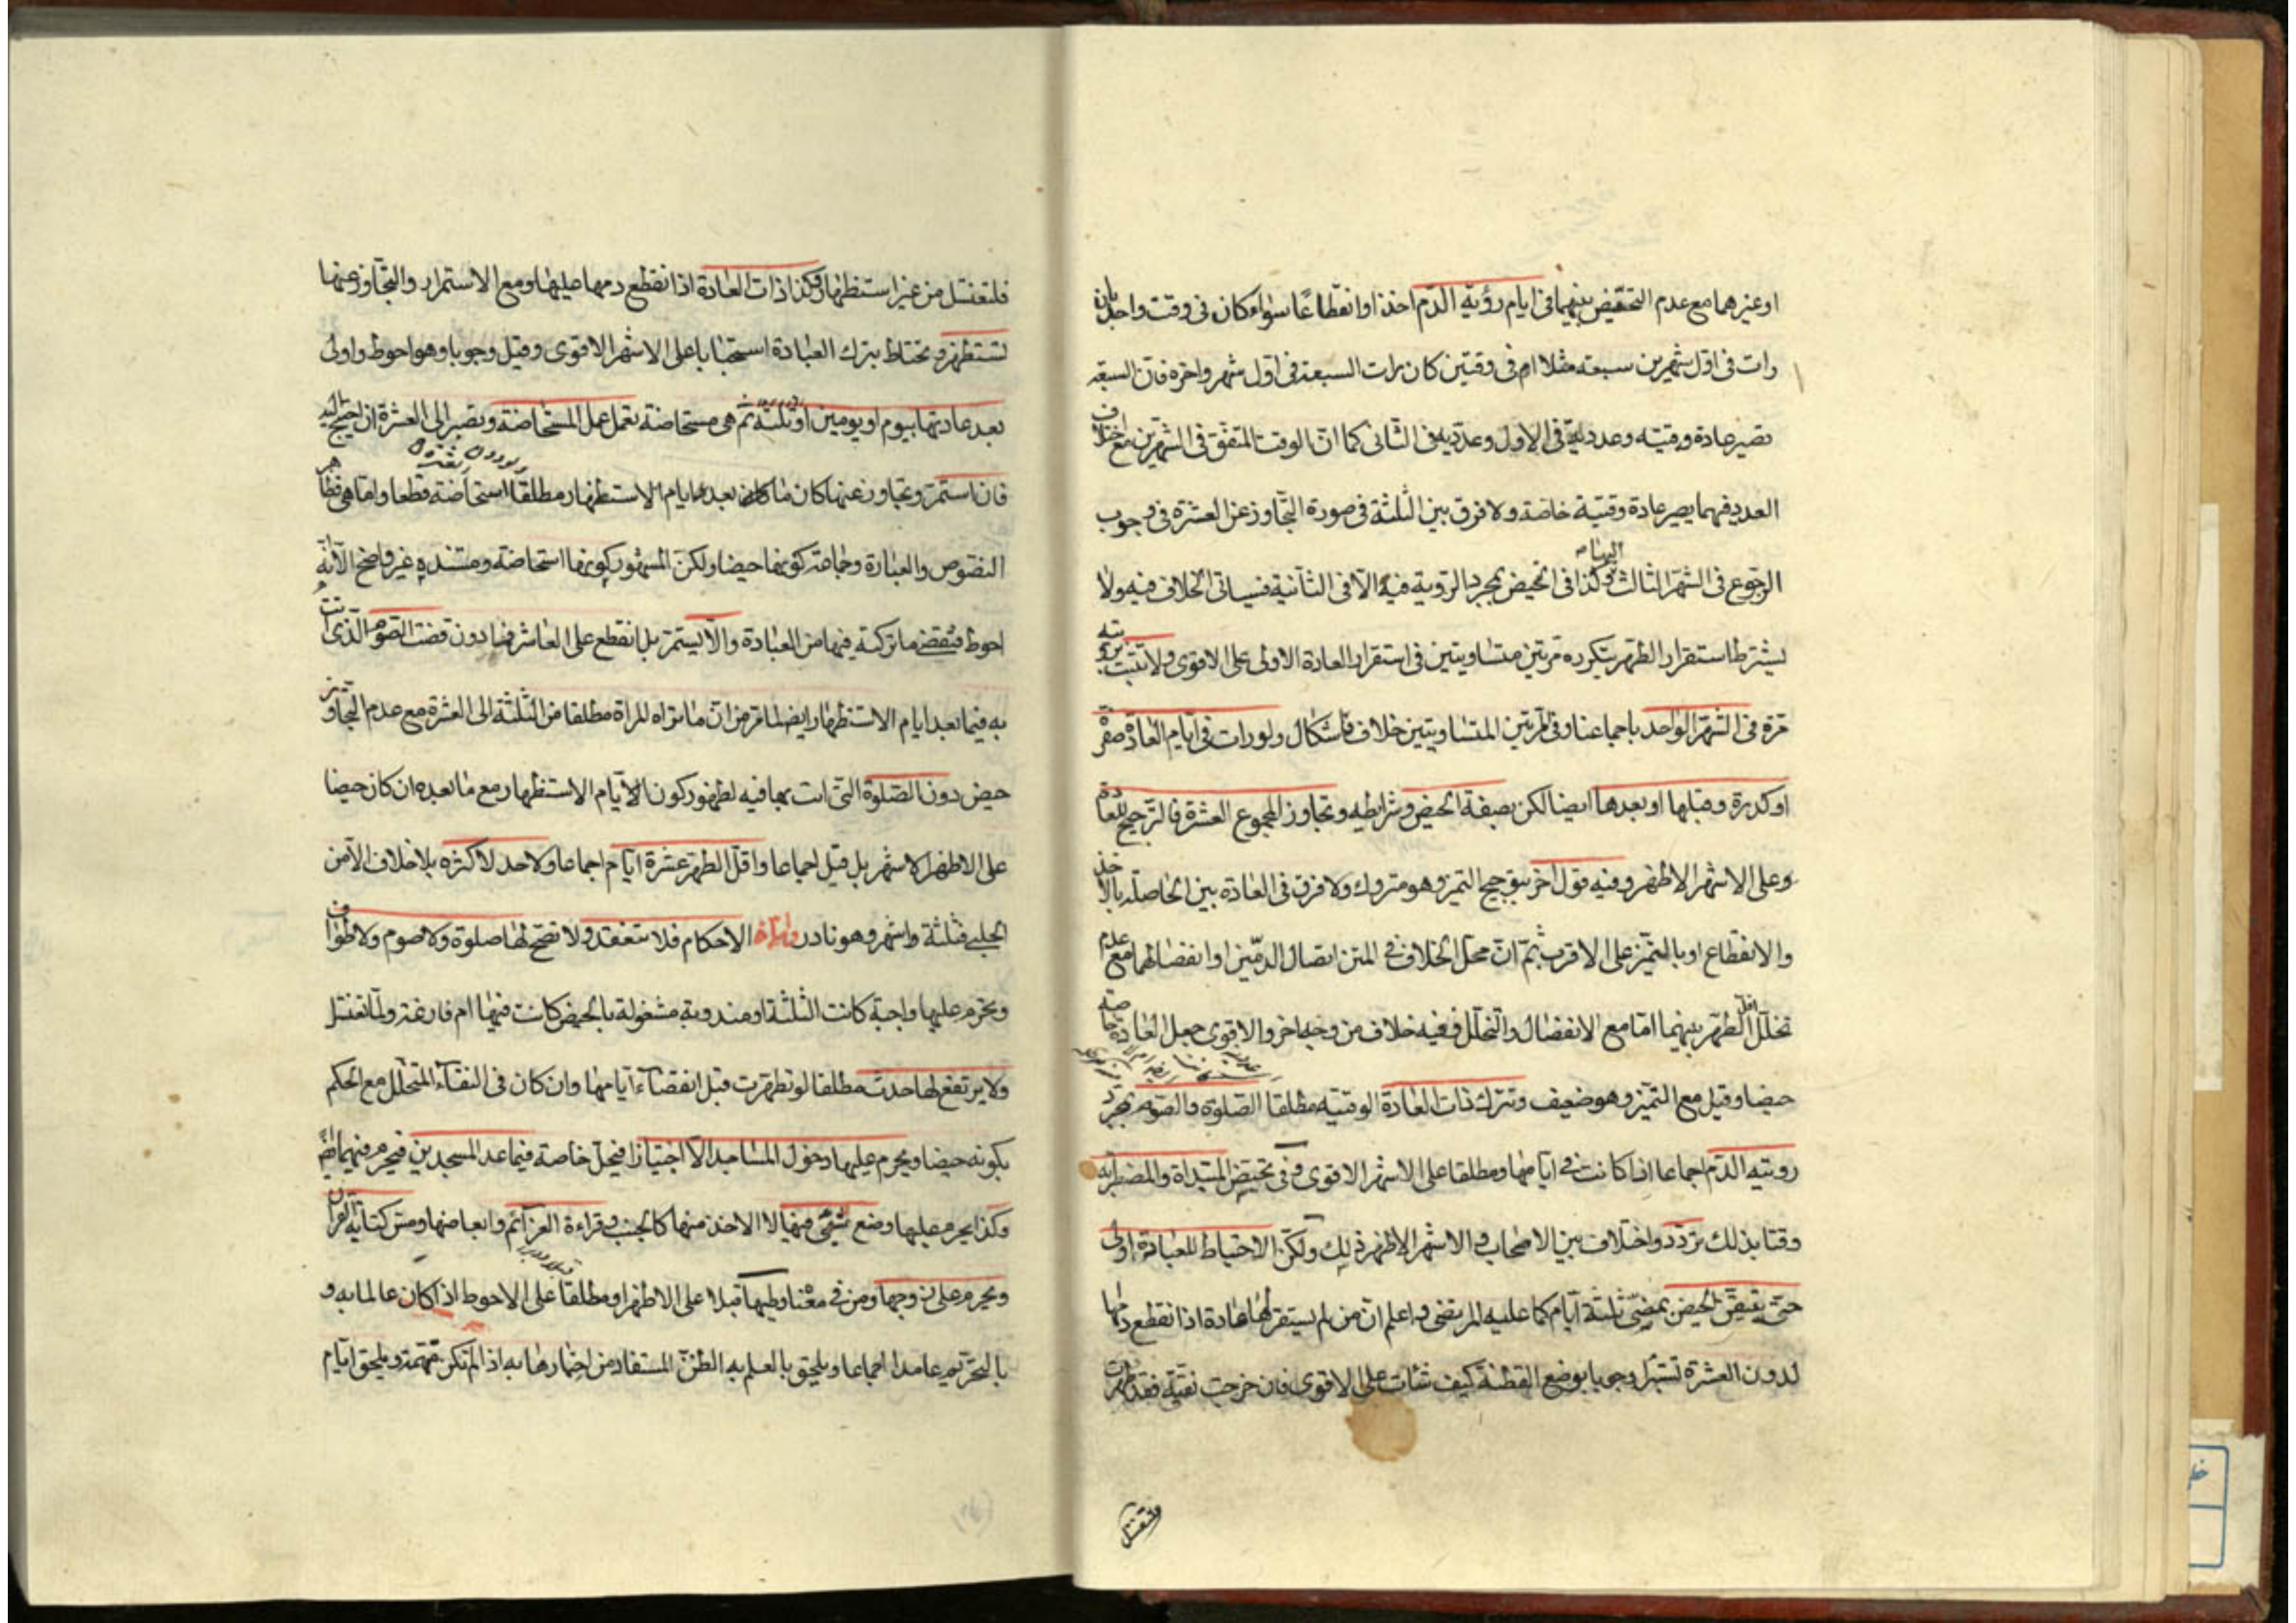 او غيرهما مع عدم التحيض بينهما فى ايام رؤية الدم اخذا وانقطاعا سواء كان فى وقت واحد بان
رات فى اول شهرين سبعة مثلا ام فى وقتين كان رات السبعة فى اول شهر واخره فان السبعة
تصير عادة وقتيه وعدديه فى الاول وعدديه فى الثانى كما ان الوقت المتفق فى الشهرين مع اختلاف
العدد فيهما يصير عادة وقتية خاصة ولا فرق بين الثلثة فى صورة التجاوز عن العشرة فى وجوب
الرجوع فى الشهر الثالث اليها وكذا فى الحيض بمجرد الرؤية فيه الا فى الثانية فسياتى الخلاف فيه ولا
يشترط استقرار الطهر بتكرره مرتين متساويتين فى استقرار العادة الاولى على الاقوى ولا تثبت برؤيته
مرة فى الشهر الواحد باجماعنا وفى المرتين المتساويتين خلاف واشكال ولو رات فى ايام العادة صفرة
او كدرة وقبلها او بعدها ايضا لكن بصفة الحيض وشرايطه وتجاوز المجموع العشرة فالترجيح للعادة
وعلى الاشهر الاظهر وفيه قول اخر بترجيح التميز وهو متروك ولا فرق فى العادة بين الحاصلة بالاخذ
والانقطاع او بالتميز على الاقرب ثم ان محل الخلاف فى المتن اتصال الدمين او انفصالهما مع عدم
تخلل اقل الطهر بينهما اما مع الانفصال والتخلل ففيه خلاف من وجه اخر والاقوى جعل العادة خاصة
حيضا وقيل مع التميز وهو ضعيف وتترك ذات العادة الوقتيه مطلقا الصلوة والصوم بمجرد
رويته الدم اجماعا اذا كانت فى ايامها ومطلقا على الاشهر الاقوى وفى تحيض المبتداة والمضطربه
وقتا بذلك تردد واختلاف بين الاصحاب والاشهر الاظهر ذلك ولكن الاحتياط للعبادة اولى
حتى يتيقن الحيض بمضى ثلثة ايام كما عليه المرتضى واعلم ان من لم يستقر لها عادة اذا انقطع دمها
لدون العشرة تستبرا وجوبا بوضع القطنة كيف شاءت على الاقوى فان خرجت نقية فقد طهرت
فلتغتسل
فلتغتسل من غير استظهار وكذا ذات العادة اذا انقطع دمها عليها ومع الاستمرار والتجاوز عنها
تستظهر وتحتاط بترك العبادة استحبابا على الاشهر الاقوى وقيل وجوبا وهو احوط واولى
بعد عادتها بيوم او يومين او ثلثة ثم هى مستحاضة تعمل عمل المستحاضة وتصبر الى العشرة ان احتيج اليه
فان استمر وتجاوز عنها كان ما كان بعد ايام الاستظهار مطلقا استحاضة قطعا واما هى فظاهر
النصوص والعبارة وجماعة كونها حيضا ولكن المشهور كونها استحاضة ومستنده غير واضح الا انه
احوط فتقضى ما تركته فيها من العبادة والا يستمر بل انقطع على العاشر فما دون قضت الصوم الذى اتت
به فيما بعد ايام الاستظهار ايضا لما مر من ان ما تراه المراة مطلقا من الثلثة الى العشرة مع عدم التجاوز
حيض دون الصلوة التى اتت بها فيه لظهور كون الايام الاستظهار مع ما بعده ان كان حيضا
على الاظهر الاشهر بل قيل اجماعا واقل الطهر عشرة ايام اجماعا ولا حد لاكثره بلا خلاف الا من
الحلبى فثلثة واشهر وهو نادر واما الاحكام فلا تنعقد ولا تصح لها صلوة ولا صوم ولا طواف
ويحرم عليها واجبة كانت الثلثة او مندوبة مشغولة بالحيض كانت فيها ام فارغة ولما تغتسل
ولا يرتفع لها حدث مطلقا لو تطهرت قبل انقضاء ايامها وان كان فى النقاء المتخلل مع الحكم
بكونه حيضا ويحرم عليها دخول المساجد الا اجتيازا فيحل خاصة فيما عدا المسجدين فيحرم فيهما ايضا
وكذا يحرم عليها وضع شئ فيها لا الاخذ منها كالجنب وقراءة العزائم وابعاضها ومس كتابة القران
ويحرم على زوجها ومن فى معناه وطيها قبلا على الاظهر او مطلقا على الاحوط اذا كان عالما به و
بالتحريم عامدا اجماعا ويلحق بالعلم به الظن المستفاد من اخبارها به اذا لم تكن متهمة ويلحق ايام